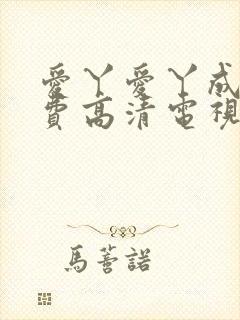 愛丫愛丫成
費高清電視
馬薈諾